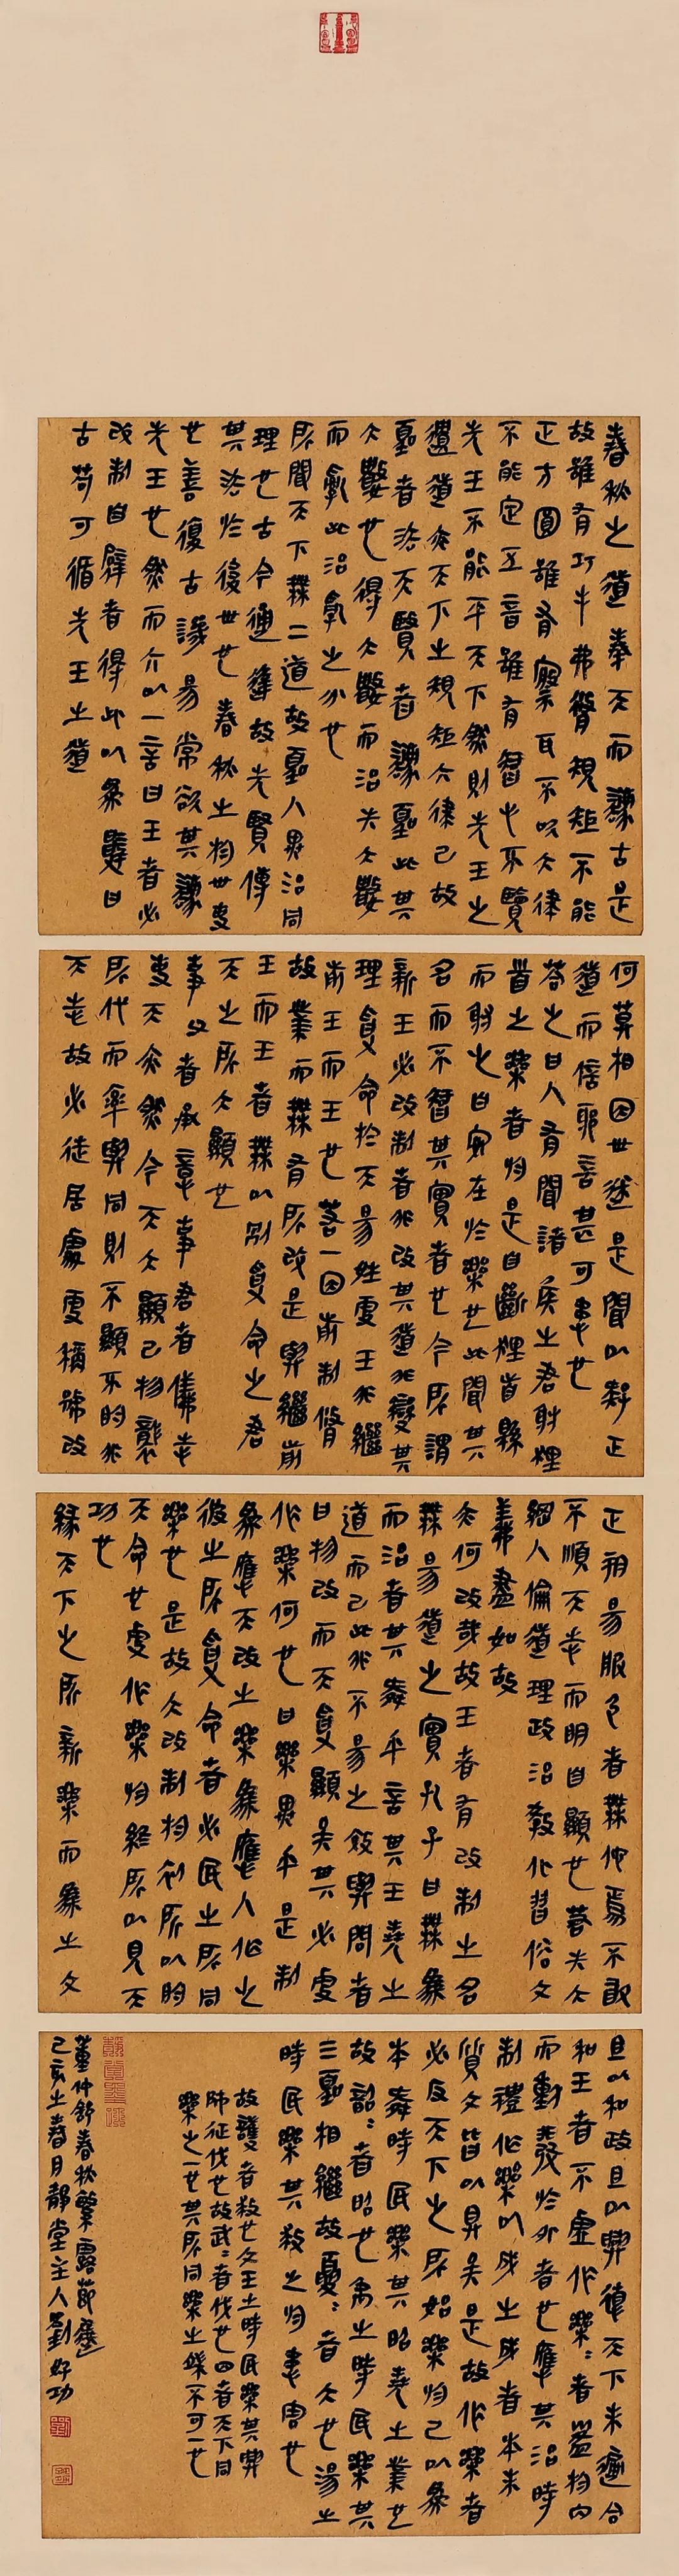 春秋之道奉天而灋古是
故雖有巧手弗脩規矩不能
正方圓雖有察耳不吹六律
不能定五音雖有智心不覽
先王不能平天下然則先王之
遺道亦天下之規矩六律已故
聖者法天賢者灋聖此其
大數也得大數而治失大數
而亂此治亂之分也
所聞天下無二道故聖人異治同
理也古今通達故先賢傳
其法於後世也春秋之於世事
也善復古譏易常欲其灋
先王也然而介以一言曰王者必
改制自僻者得此以為辭曰
古苟可循先王之道
何莫相因世迷是聞以疑正
道而信邪言甚可患也
答之曰人有聞諸侯之君射貍
首之樂者於是自斷貍首縣
而射之曰安在於樂也此聞其
名而不智其實者也今所謂
新王必改制者非改其道非變其
理受命於天易姓更王非繼
前王而王也若一因前制脩
故業而無有所改是與繼前
王而王者無以別受命之君
天之所大顯也
事父者承意事君者儀志
事天亦然今天大顯已物襲
所代而率與同則不顯不明非
天志故必徒居處更稱號改
正朔易服色者無他焉不敢
不順天志而明自顯也若夫大
綱人倫道理政治教化習俗文
義盡如故
亦何改哉故王者有改制之名
無易道之實孔子曰無為
而治者其舜乎言其王堯之
道而已此非不易之效與問者
曰物改而天受顯矣其必更
作樂何也曰樂異乎是制
為應天改之樂為應人作之
彼之所受命者必民之所同
樂也是故大改制於初所以明
天命也更作樂於終所以見天
功也
緣天下之所新樂而為之文
且以和政且以興德天下未遍合
和王者不虛作樂：者盈於內
而動發於外者也應其治時
制禮作樂以成之成者本末
質文皆以具矣是故作樂者
必反天下之所始樂於己以為
本舜時民樂其昭堯之業也
故韶：者昭也禹之時民樂其
三聖相繼故夏：者大也湯之
時民樂其救之於患害也
故護者救也文王之時民樂其興
師征伐也故武：者伐也四者天下同
樂之一也其所同樂之端不可一也
董仲舒春秋繁露節選
己亥之春月靜堂主人劉好功